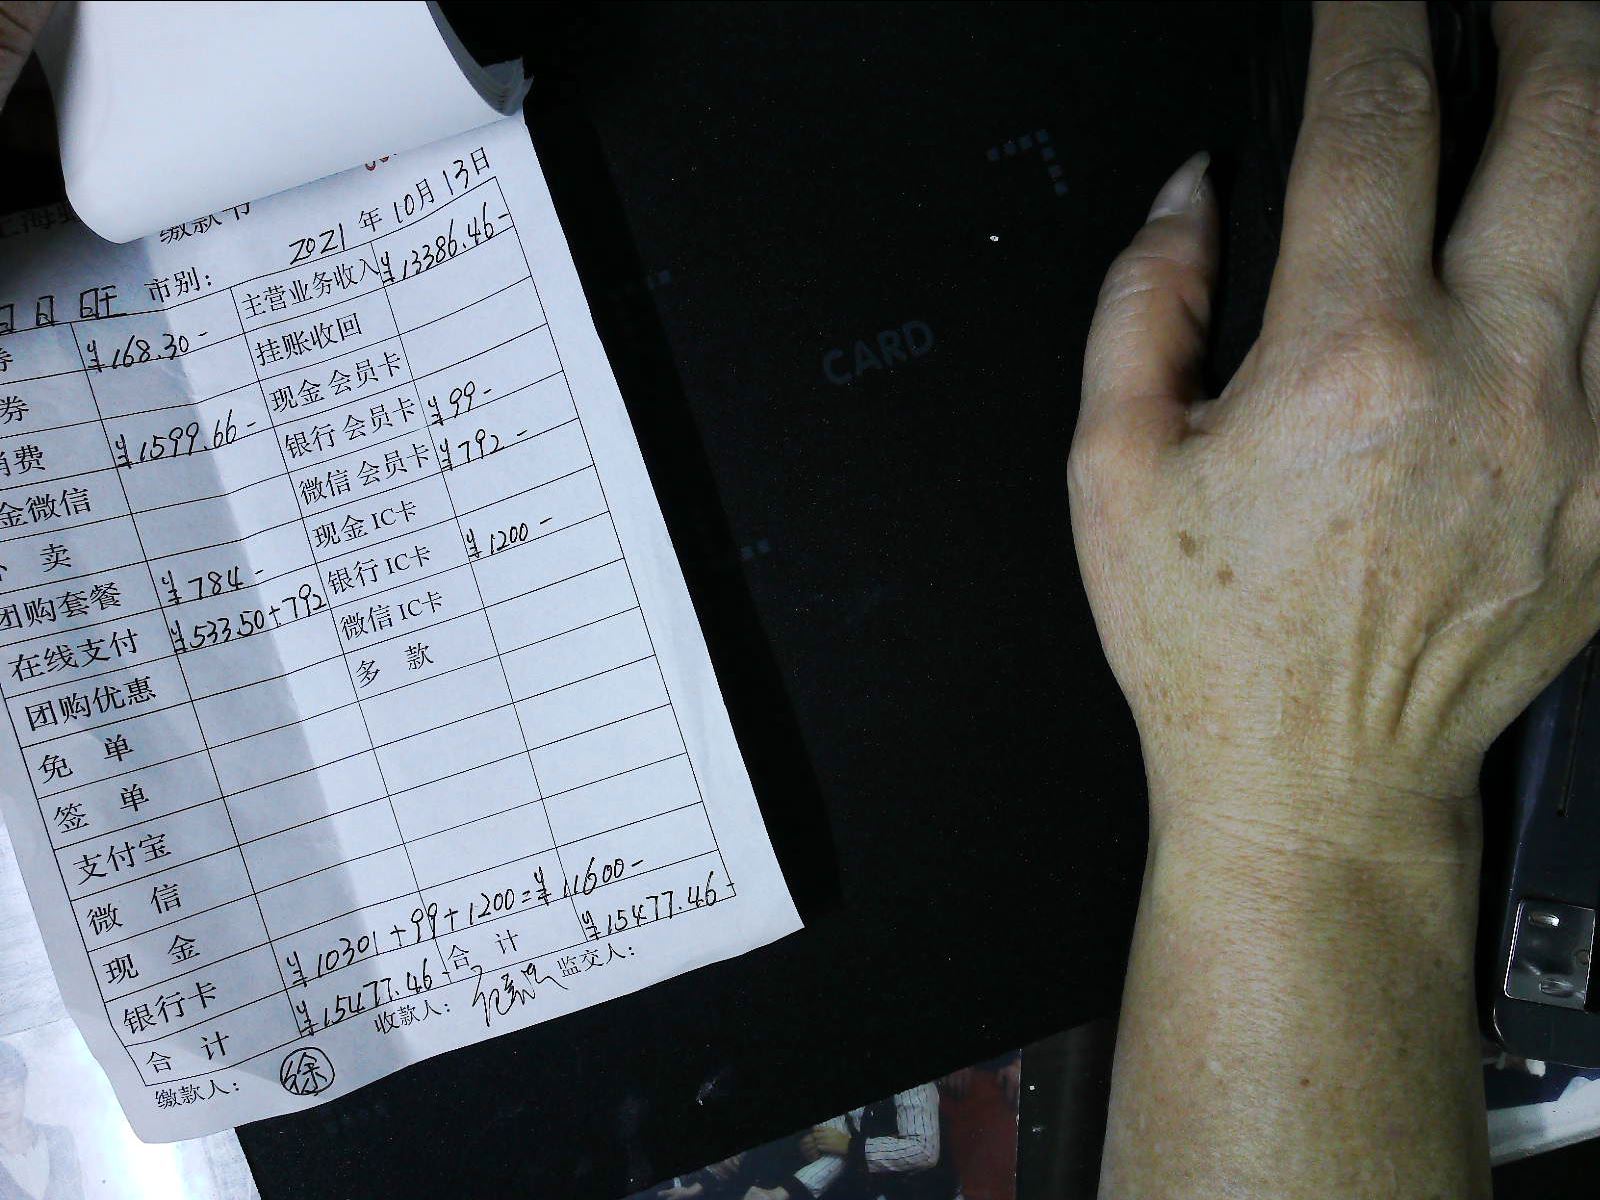 缴款书
2021年10月13日
市别：
券 ¥168.30- 主营业务收入 ¥13386.46-
券 挂账收回
消费 ¥1599.66- 现金会员卡
金微信 银行会员卡 ¥99-
卖 微信会员卡 ¥792-
团购套餐 ¥784- 现金IC卡
在线支付 ¥533.50+792 银行IC卡 ¥1200-
团购优惠 微信IC卡
免单 多款
签单
支付宝
微信
现金
银行卡 ¥10301+99+1200=¥11600-
合计 ¥15477.46- 合计 ¥15477.46-
缴款人： 徐 收款人： 监交人：
CARD